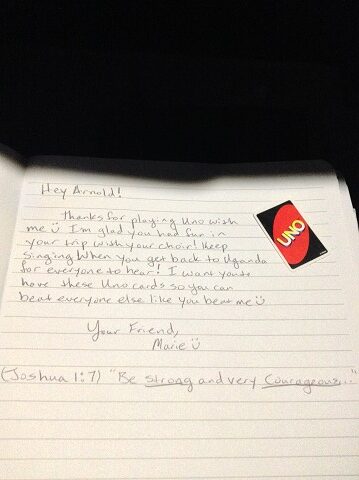 Hey Arnold!
Thanks for playing Uno with
me ü I'm glad you had fun in
your trip with your choir! Keep
singing When you get back to Uganda
for everyone to hear! I want you to
have these Uno cards so you can
beat everyone else like you beat me ü
UNO
Your Friend,
Marie ü
(Joshua 1:7) "Be strong and very Courageous..."